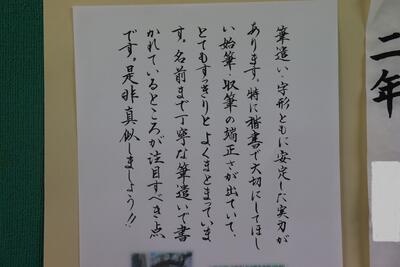 筆遣い・字形ともに安定した実力が
あります。特に楷書で大切にしてほし
い始筆・収筆の端正さが出ていて、
とてもすっきりとよくまとまっていま
す。名前まで丁寧な筆遣いで書
かれているところが注目すべき点
です。是非真似しましょう!!
二年